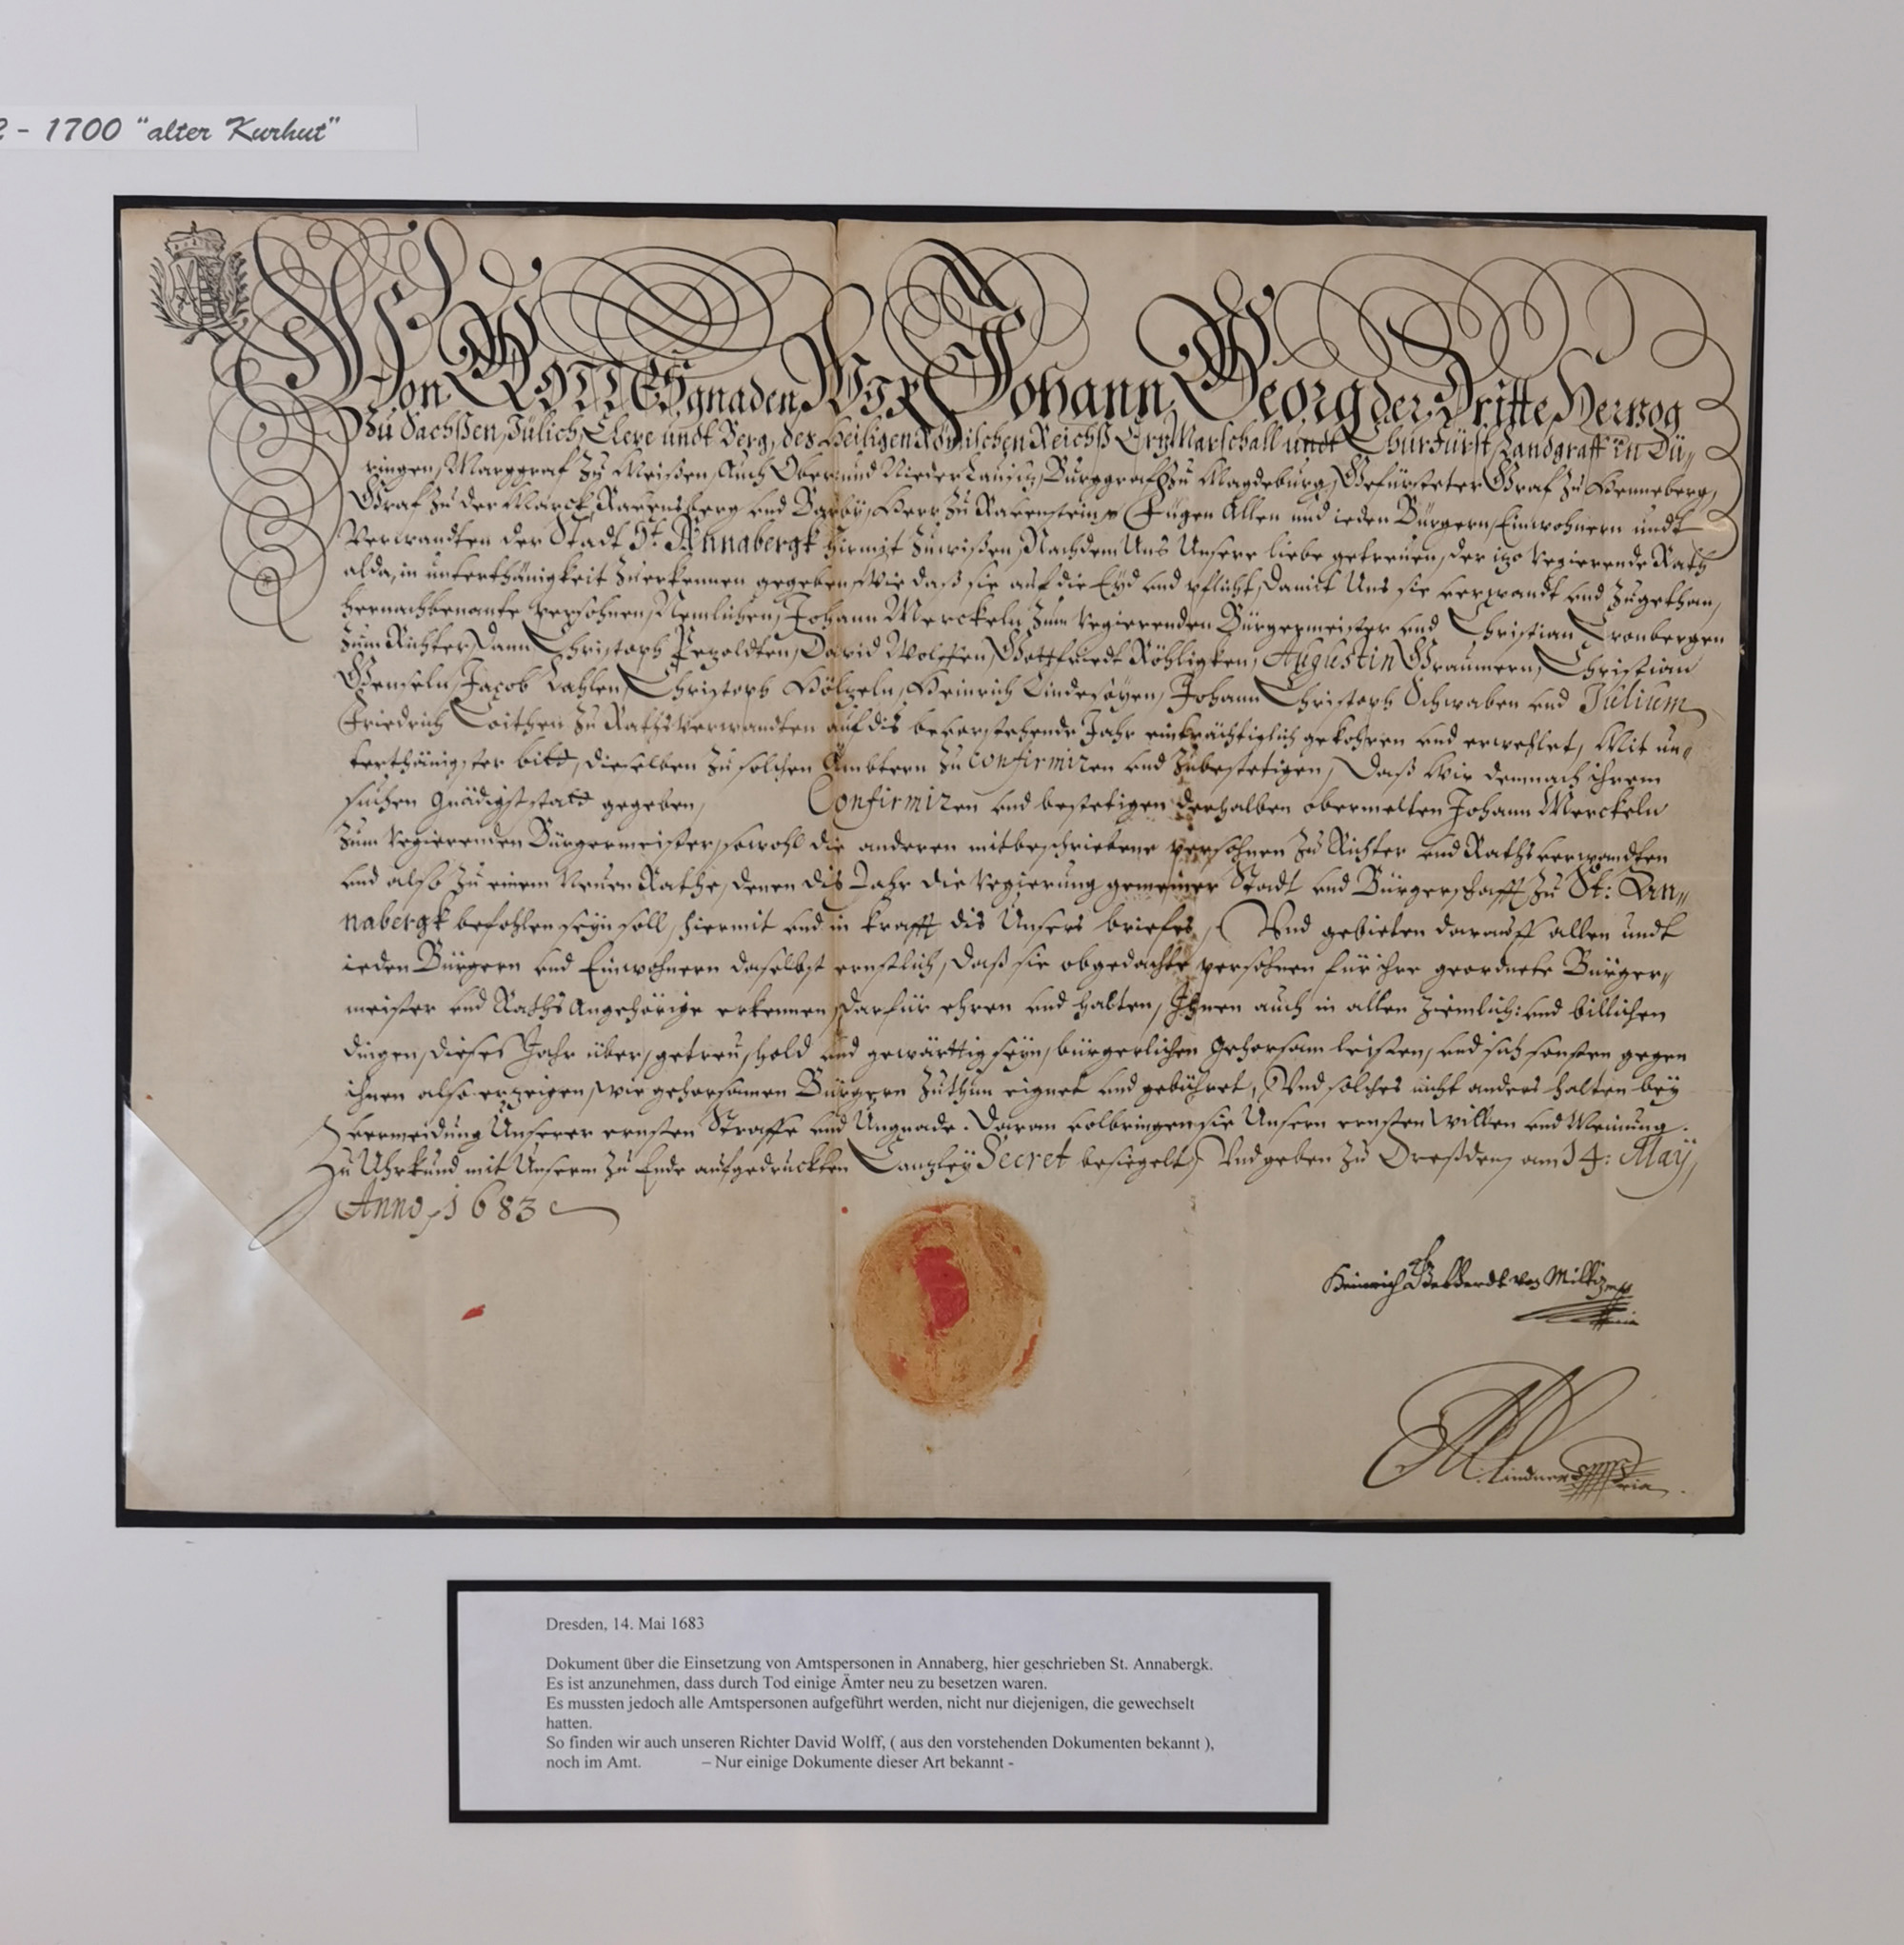 - 1700 "alter Kurhut"
Von GOTTES gnaden, WIR Johann Georg der Dritte, Herzog
Zu Sachßen, Jülich, Cleve undt Berg, des Heiligen Römischen Reichß Ertz Marschall undt Churfürst, Landgraff in Dü„
ringen, Marggraf Zu Meißen, Auch Ober und Nieder Lausitz, Burggraf Zu Magdeburg, Gefürsteter Graf Zu Henneberg,
Graf Zu der Marck, Ravensberg und Barby, Herr Zu Ravenstein, Fügen Allen und ieden Bürgern, Einwohnern undt
Verwandten der Stadt St. Annabergk hirmit Zuwißen, Nachdem Uns Unsere liebe getreuen, der itzo regierende Rath
alda, in unterthänigkeit Zuerkennen gegeben, Wie daß sie auf die Eyd und pflicht, damit Uns sie verwandt und Zugethan,
hernachbenante Persohnen, Nemlichen, Johann Merckeln Zum regierenden Bürgermeister und Christian Cronbergen
Zum Richter, Dann Christoph Pezoldten, David Wolffen, Gottfriedt Röhligken, Augustin Graumern, Christian
Jacob Christoph Hölzeln, Heinrich Johann Christoph Schwaben und Julium
Friedrich Zu Raths Verwandten auf dis bevorstehende Jahr einträchtiglich gekohren und erwehlet, Mit un„
terthänigster bitt, dieselben Zu solchen Ämbtern Zu confirmiren und Zubestetigen, Daß Wir demnach ihrem
suchen gnädigst statt gegeben, Confirmiren und bestetigen derhalben obermelten Johann Merckeln
Zum regierenden Bürgermeister, sowohl die anderen mitbeschriebene persohnen Zu Richter und Raths verwandten
und also Zu einem Neuen Rathe, denen dis Jahr die regierung gemeiner Stadt und Bürgerschafft Zu St: An„
nabergk befohlen seyn soll, hiermit und in krafft dis Unsers briefes, Und gebieten darauff allen undt
ieden Bürgern und Einwohnern daselbst ernstlich, daß sie obgedachte persohnen für ihre geordnete Bürger„
meister und Raths Angehörige erkennen, darfür ehren und halten, Ihnen auch in allen ziemlich: und billichen
dingen, dieses Jahr über, getreu, hold und gewärttig seyn, bürgerlichen gehorsam leisten, und sich sonsten gegen
ihnen also erzeigen, wie gehorsamen Bürgern Zuthun eignet und gebühret, Und solches nicht anders halten bey
vermeidung Unserer ernsten Straffe und Ungnade. Daran volbringen sie Unsern ernsten Willen und Meinung.
Zu Uhrkund mit Unserm Zu Ende aufgedruckten Canzley Secret besiegelt, Und geben Zu Dreßden, am 14: May,
Anno, 1683
Heinrich Gebhardt von Miltiz
Lindner
Dresden, 14. Mai 1683
Dokument über die Einsetzung von Amtspersonen in Annaberg, hier geschrieben St. Annabergk.
Es ist anzunehmen, dass durch Tod einige Ämter neu zu besetzen waren.
Es mussten jedoch alle Amtspersonen aufgeführt werden, nicht nur diejenigen, die gewechselt
hatten.
So finden wir auch unseren Richter David Wolff, ( aus den vorstehenden Dokumenten bekannt ),
noch im Amt. – Nur einige Dokumente dieser Art bekannt -